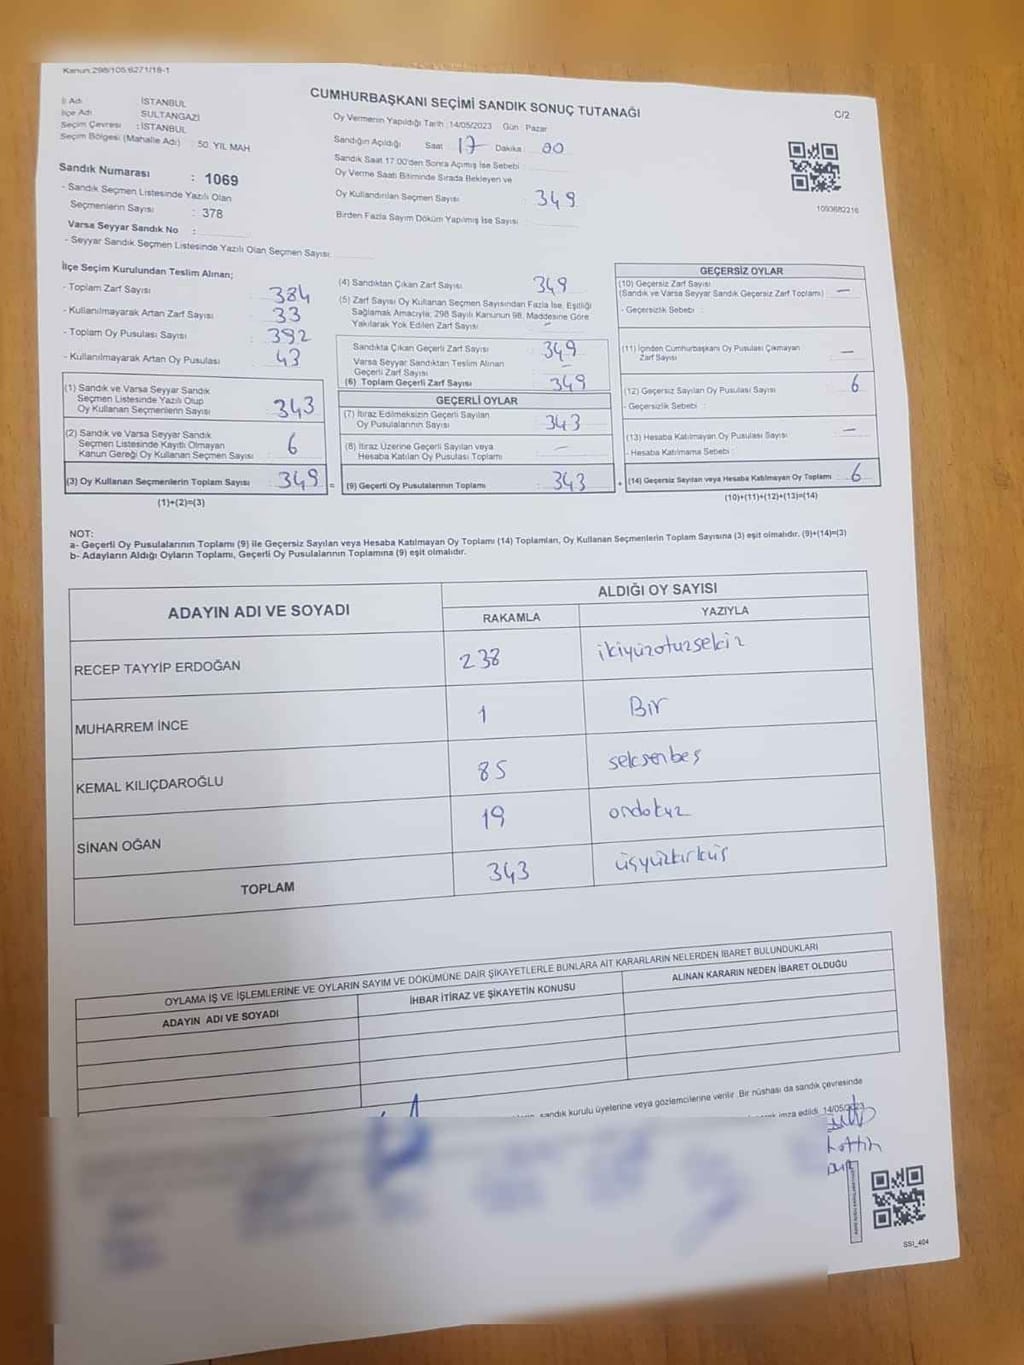 Kanun:298/105:6271/18-1
CUMHURBAŞKANI SEÇİMİ SANDIK SONUÇ TUTANAĞI
C/2
İl Adı : İSTANBUL
İlçe Adı : SULTANGAZİ
Seçim Çevresi : İSTANBUL
Seçim Bölgesi (Mahalle Adı) : 50. YIL MAH
Oy Vermenin Yapıldığı Tarih :14/05/2023 Gün : Pazar
Sandığın Açıldığı Saat : 17 Dakika : 00
Sandık Saat 17:00'den Sonra Açılmış İse Sebebi :
Oy Verme Saati Bitiminde Sırada Bekleyen ve
Oy Kullandırılan Seçmen Sayısı : 349
Birden Fazla Sayım Döküm Yapılmış İse Sayısı :
1093682216
Sandık Numarası : 1069
- Sandık Seçmen Listesinde Yazılı Olan
Seçmenlerin Sayısı : 378
Varsa Seyyar Sandık No :
- Seyyar Sandık Seçmen Listesinde Yazılı Olan Seçmen Sayısı:
İlçe Seçim Kurulundan Teslim Alınan;
- Toplam Zarf Sayısı : 384
- Kullanılmayarak Artan Zarf Sayısı : 33
- Toplam Oy Pusulası Sayısı : 392
- Kullanılmayarak Artan Oy Pusulası : 43
(1) Sandık ve Varsa Seyyar Sandık
Seçmen Listesinde Yazılı Olup
Oy Kullanan Seçmenlerin Sayısı : 343
(2) Sandık ve Varsa Seyyar Sandık
Seçmen Listesinde Kayıtlı Olmayan
Kanun Gereği Oy Kullanan Seçmen Sayısı : 6
(3) Oy Kullanan Seçmenlerin Toplam Sayısı : 349 =
(1)+(2)=(3)
(4) Sandıktan Çıkan Zarf Sayısı : 349
(5) Zarf Sayısı Oy Kullanan Seçmen Sayısından Fazla İse, Eşitliği
Sağlamak Amacıyla; 298 Sayılı Kanunun 98. Maddesine Göre
Yakılarak Yok Edilen Zarf Sayısı : –
Sandıkta Çıkan Geçerli Zarf Sayısı : 349
Varsa Seyyar Sandıktan Teslim Alınan
Geçerli Zarf Sayısı : –
(6) Toplam Geçerli Zarf Sayısı : 349
GEÇERLİ OYLAR
(7) İtiraz Edilmeksizin Geçerli Sayılan
Oy Pusulalarının Sayısı : 343
(8) İtiraz Üzerine Geçerli Sayılan veya
Hesaba Katılan Oy Pusulası Toplamı : –
(9) Geçerli Oy Pusulalarının Toplamı : 343 +
GEÇERSİZ OYLAR
(10) Geçersiz Zarf Sayısı
(Sandık ve Varsa Seyyar Sandık Geçersiz Zarf Toplamı) : –
- Geçersizlik Sebebi :
(11) İçinden Cumhurbaşkanı Oy Pusulası Çıkmayan
Zarf Sayısı : –
(12) Geçersiz Sayılan Oy Pusulası Sayısı : 6
- Geçersizlik Sebebi :
(13) Hesaba Katılmayan Oy Pusulası Sayısı : –
- Hesaba Katılmama Sebebi :
(14) Geçersiz Sayılan veya Hesaba Katılmayan Oy Toplamı : 6
(10)+(11)+(12)+(13)=(14)
NOT:
a- Geçerli Oy Pusulalarının Toplamı (9) ile Geçersiz Sayılan veya Hesaba Katılmayan Oy Toplamı (14) Toplamları, Oy Kullanan Seçmenlerin Toplam Sayısına (3) eşit olmalıdır. (9)+(14)=(3)
b- Adayların Aldığı Oyların Toplamı, Geçerli Oy Pusulalarının Toplamına (9) eşit olmalıdır.
ADAYIN ADI VE SOYADI ALDIĞI OY SAYISI
RAKAMLA YAZIYLA
RECEP TAYYİP ERDOĞAN 238 ikiyüzotuzsekiz
MUHARREM İNCE 1 Bir
KEMAL KILIÇDAROĞLU 85 seksenbeş
SİNAN OĞAN 19 ondokuz
TOPLAM 343 üçyüzkırküç
OYLAMA İŞ VE İŞLEMLERİNE VE OYLARIN SAYIM VE DÖKÜMÜNE DAİR ŞİKAYETLERLE BUNLARA AİT KARARLARIN NELERDEN İBARET BULUNDUKLARI
ADAYIN ADI VE SOYADI İHBAR İTİRAZ VE ŞİKAYETİN KONUSU ALINAN KARARIN NEDEN İBARET OLDUĞU
sandık kurulu üyelerine veya gözlemcilerine verilir. Bir nüshası da sandık çevresinde
imza edildi. 14/05/2023
SSI_404